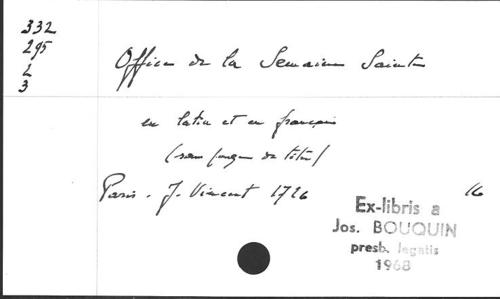 332
295
2
3
Office de la Semaine Sainte
en latin et en français
(sans page de titre)
Paris - J. Vincent 1726
16
Ex-libris a
Jos. BOUQUIN
presb. legatis
1968